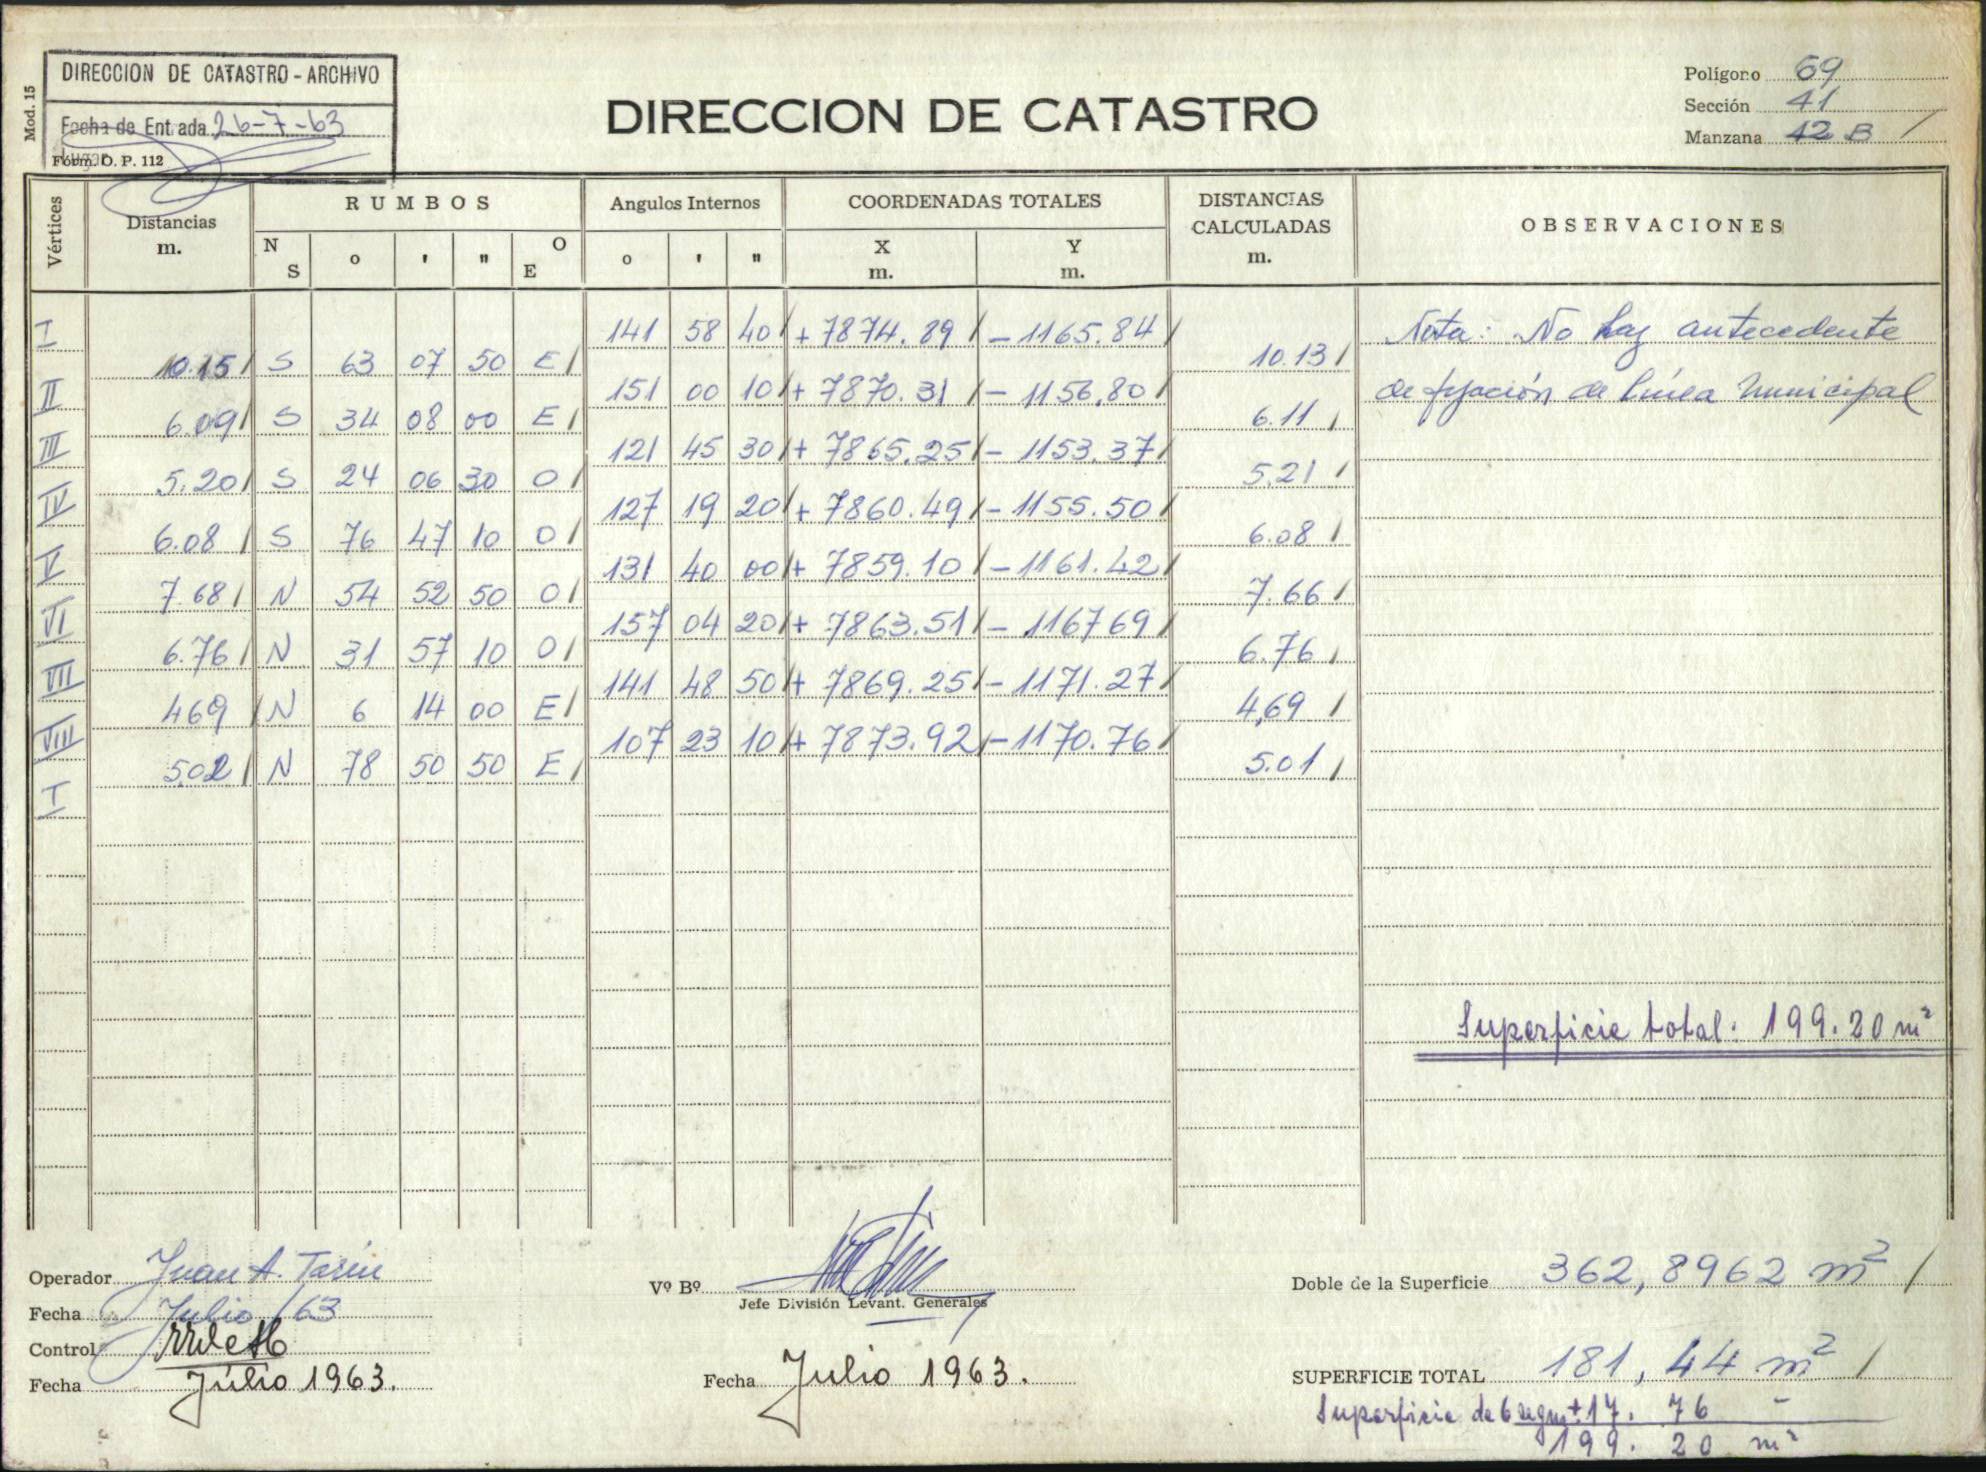 DIRECCION DE CATASTRO - ARCHIVO
Fecha de Entrada 26-7-63
Lugar
Mod. 15
Fórm. O. P. 112
DIRECCION DE CATASTRO
Polígono 69
Sección 41
Manzana 42 B /
Vértices
Distancias m.
RUMBOS
N S o ' " O E
Angulos Internos
o ' "
COORDENADAS TOTALES
X m. Y m.
DISTANCIAS CALCULADAS m.
OBSERVACIONES
I 141 58 40 / + 7874.89 / - 1165.84 /
10.15 / S 63 07 50 E / 10.13 /
II 151 00 10 / + 7870.31 / - 1156.80 /
6.09 / S 34 08 00 E / 6.11 /
III 121 45 30 / + 7865.25 / - 1153.37 /
5.20 / S 24 06 30 O / 5.21 /
IV 127 19 20 / + 7860.49 / - 1155.50 /
6.08 / S 76 47 10 O / 6.08 /
V 131 40 00 / + 7859.10 / - 1161.42 /
7.68 / N 54 52 50 O / 7.66 /
VI 157 04 20 / + 7863.51 / - 1167 69 /
6.76 / N 31 57 10 O / 6.76 /
VII 141 48 50 / + 7869.25 / - 1171.27 /
4 69 / N 6 14 00 E / 4,69 /
VIII 107 23 10 / + 7873.92 / - 1170.76 /
5.02 / N 78 50 50 E / 5.01 /
I
Nota: No hay antecedente
de fijación de línea Municipal
Superficie total: 199.20 m²
Operador Juan A. Tarín
Fecha Julio /63
Control
Fecha Julio 1963.
Vº Bº
Jefe División Levant. Generales
Fecha Julio 1963.
Doble de la Superficie 362,8962 m² /
SUPERFICIE TOTAL 181,44 m² /
Superficie de 6 segm + 17. 76 -
199. 20 m²